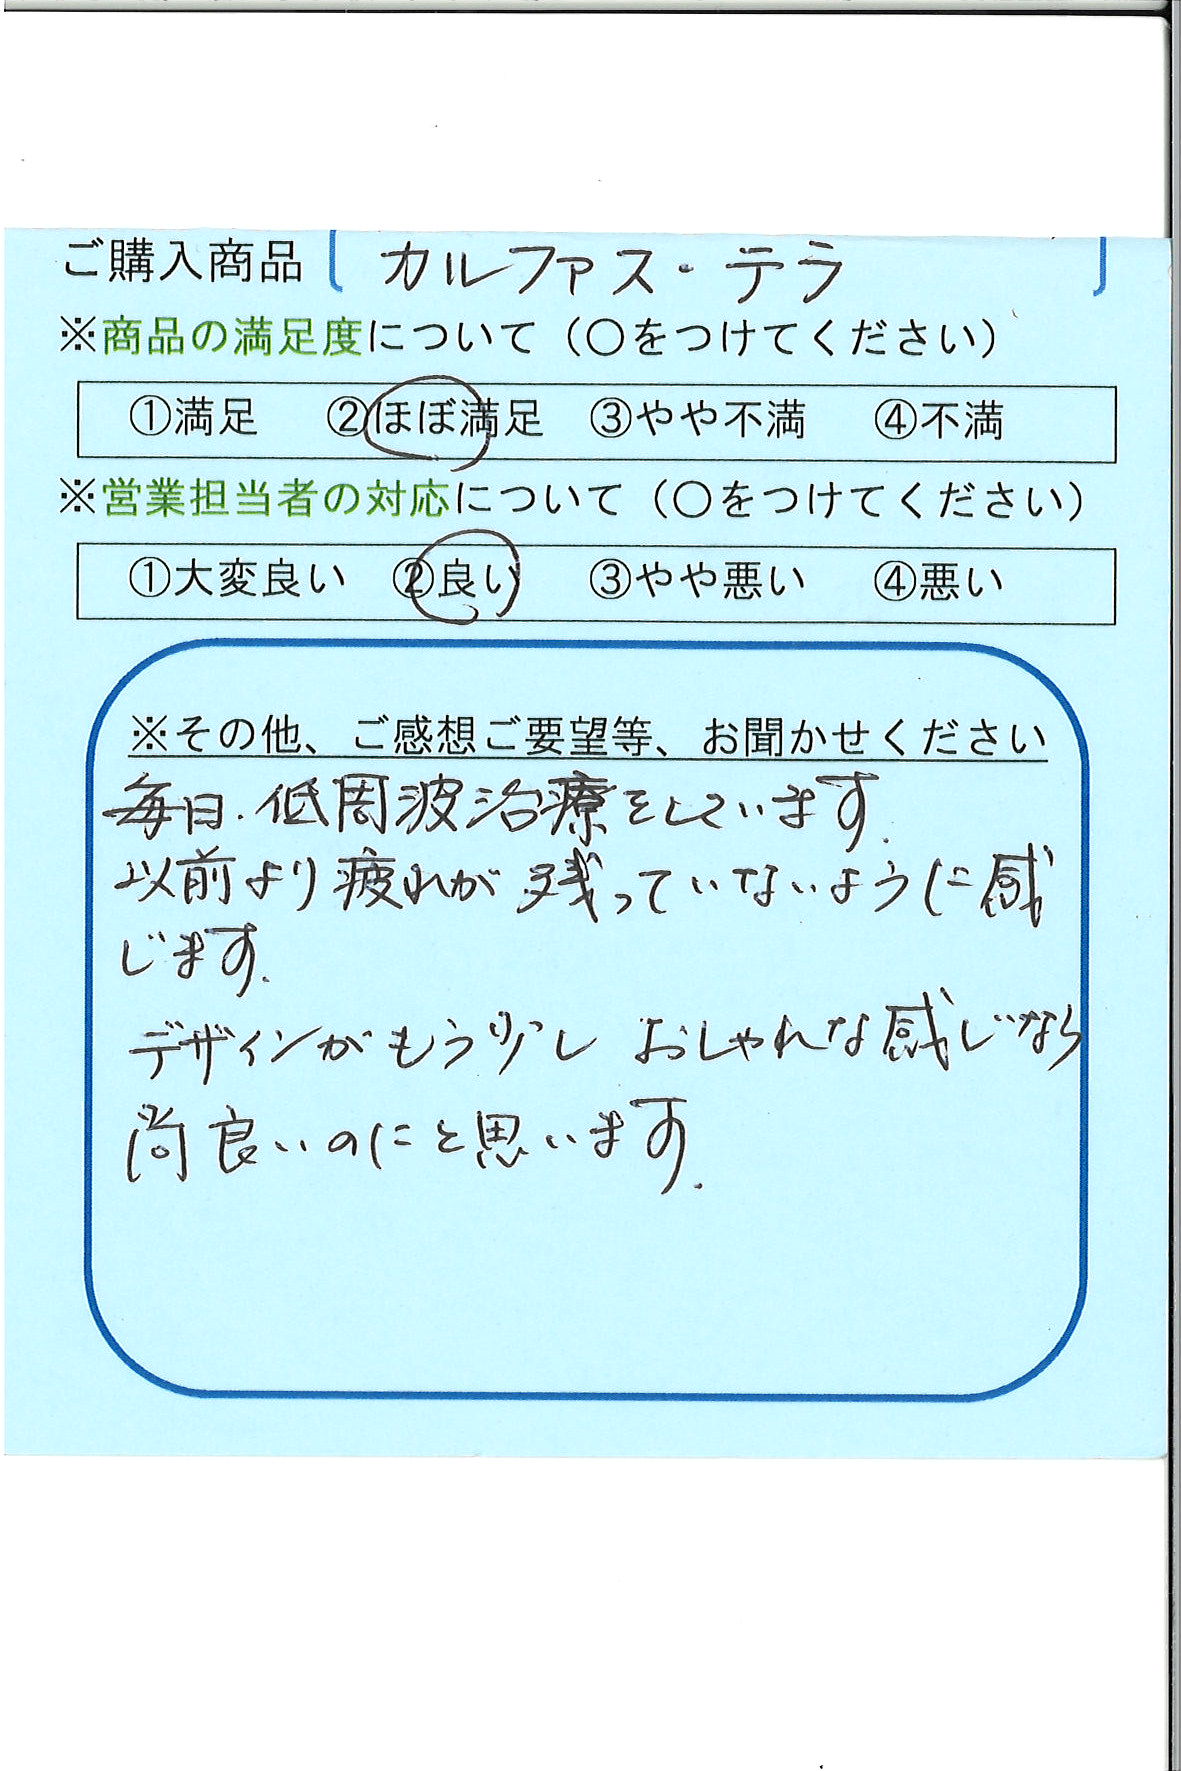 ご購入商品〔カルファス・テラ〕
※商品の満足度について（〇をつけてください）
①満足 ②ほぼ満足 ③やや不満 ④不満
※営業担当者の対応について（〇をつけてください）
①大変良い ②良い ③やや悪い ④悪い
※その他、ご感想ご要望等、お聞かせください
毎日.低周波治療をしています.
以前より疲れが残っていないように感
じます.
デザインがもう少し おしゃれな感じなら
尚良いのにと思います.